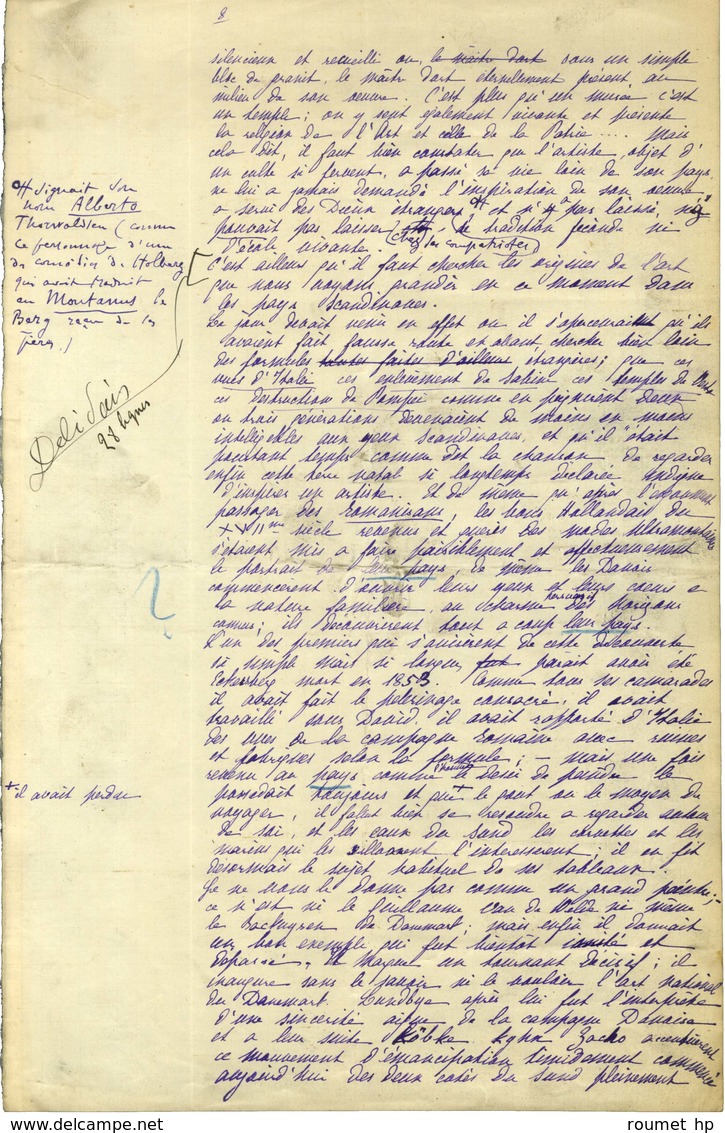 8
silencieux et recueilli ou, le maître dort sous un simple
bloc de granit, le maître dort éternellement présent au
milieu de son oeuvre. C'est plus qu'un musée c'est
un temple; on y sent également vivante et présente
la religion de l'Art et celle de la Patrie .... Mais
cela dit, il faut bien constater que l'artiste, objet d'
un culte si fervent, a passé sa vie loin de son pays,
ne lui a jamais demandé l'inspiration de son oeuvre
a servi des Dieux étrangers et n'a pas laissé, ni
pouvait pas laisser de tradition féconde ni
d'école vivante. (chez ses compatriotes)
C'est ailleurs qu'il faut chercher les origines de l'art
que nous voyons grandir en ce moment dans
les pays Scandinaves.
Le jour devait venir en effet ou il s'apercevraient qu'ils
avaient fait fausse route et allant chercher bien loin
des formules toutes faites d'ailleurs étrangères; que ces
vues d'Italie ces enlèvement de Sabine ces temples de
ces destruction de Pompeï comme en peignirent deux
ou trois générations devenaient de moins en moins
intelligibles aux yeux scandinaves, et qu'il était
pourtant temps comme dit la chanson de regarder
enfin cette terre natal si longtemps déclarée indigne
d'inspirer un artiste. Et de même qu'après l'engouement
passager des Romanisans, les bons Hollandais du
XVIIme siècle revenus et guéris des modes ultramontaines
s'étaient mis a faire paisiblement et affectueusement
le portrait de leur pays, de même les Danois
commencèrent d'ouvrir leurs yeux et leurs coeurs a
la nature familière, au charme des horizons
connus; ils découvrirent tout a coup leur pays.
L'un des premiers qui s'avisèrent de cette découverte
si simple mais si longue fut parait avoir été
Eckersberg mort en 1853. Comme tous ses camarades
il avait fait le pélerinage consacré, il avait
travaillé sous David, il avait rapporté d'Italie
des vues de la campagne romaine avec ruines
et fabriques selon la formule; – mais une fois
revenu au pays, comme le désir de peindre le
possédait toujours et que + le gout ou le moyen de
voyager, il fallut bien se resoudre a regarder autour
de soi, et les eaux du Sund les corvettes et les
marins qui les sillonnent l'interesserent; il en fit
désormais le sujet habituel de ses tableaux.
Je ne vous le donne pas comme un grand peintre; –
ce n'est ni le Guillaume Van de Velde ni même
le Backuysen du Danemark; mais enfin il donnait
un bon exemple qui fut bientôt imité et
dépassé. Il marque un tournant décisif; il
inaugure sans le savoir ni le vouloir l'art national
du Danemark. Lundbye après lui fut l'interprète
d'une sincérité aigue de la campagne Danoise
et a leur suite Köbke Kyhn Zacho accentuèrent
ce mouvement d'émancipation timidement commencé
aujourd'hui des deux cotés du Sund pleinement
signait son
nom Alberto
Thorwaldsen (comme
ce personnage d'une
des comédies de Holberg
qui avait traduit
en Montanus le
Berg reçu de ses
pères.)
28 lignes
?
+ il avait perdu
roumet hp